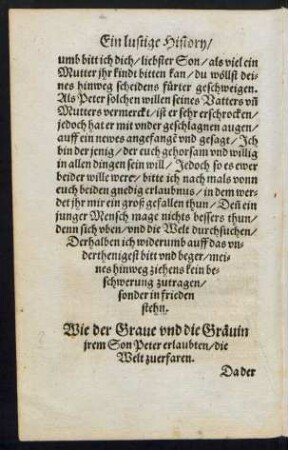 Ein lustige History/
umb bitt ich dich/ liebster Son/ als viel ein
Mutter jhr kindt bitten kan/ du wöllst dei-
nes hinweg scheidens fürter geschweigen.
Als Peter solchen willen seines Vatters vñ
Mutters vermerckt/ ist er sehr erschrocken/
jedoch hat er mit vnder geschlagnen augen/
auff ein newes angefangẽ vnd gesagt/ Ich
bin der jenig/ der euch gehorsam vnd willig
in allen dingen sein will/ Jedoch so es ewer
beider wille were/ bitte ich nach mals vonn
euch beiden gnedig erlaubnus/ in dem wer-
det jhr mir ein groß gefallen thun/ Deñ ein
junger Mensch mage nichts bessers thun/
denn sich vben/ vnd die Welt durchsuchen/
Derhalben ich widerumb auff das vn-
derthenigest bitt vnd beger/ mei-
nes hinweg ziehens kein be-
schwerung zutragen/
sonder in frieden
stehn.
Wie der Graue vnd die Gräuin
jrem Son Peter erlaubten/ die
Welt zuerfaren.
Da der